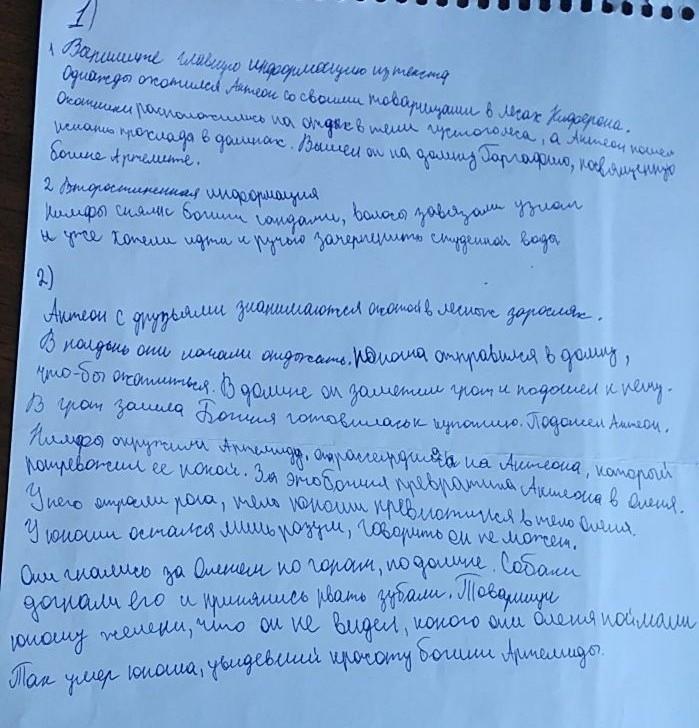 1)
1 Выпишите главную информацию из текста
Однажды охотился Актеон со своими товарищами в лесах Киферона.
Охотники расположились на отдых в тени густого леса, а Актеон пошел
искать прохлада в долинах. Вышел он на долину Гаргафию, посвященную
богине Артемите.
2 Второстипенная информация
Нимфы сняли богини сандали, волосы завязали узлом
и уже хотели идти к ручью зачерпнуть студенной воды
2)
Актеон с друзьями знанимаются охотой в лесных зарослях.
В полдень они начали отдыхать. Юноша отправился в долину,
что-бы охотиться. В долине он заметил грот и подошел к нему.
В грот зашла Богиня готовилась к купанию. Подошел Актеон.
Нимфы окружили Артемиду, рассердилась на Актеона, который
потревожил ее покой. За это богиня превратила Актеона в Оленя.
У него отрасли рога, тело юноши превратился в тело Оленя.
У юноши остался лишь разум, говорить он не может.
Они гнались за Оленем по горам, по долине. Собаки
догнали его и принялись рвать зубами. Товарищи
юношу жалели, что он не видел, какого они оленя поймали
Так умер юноша, увидевший красоту богини Артемиды.